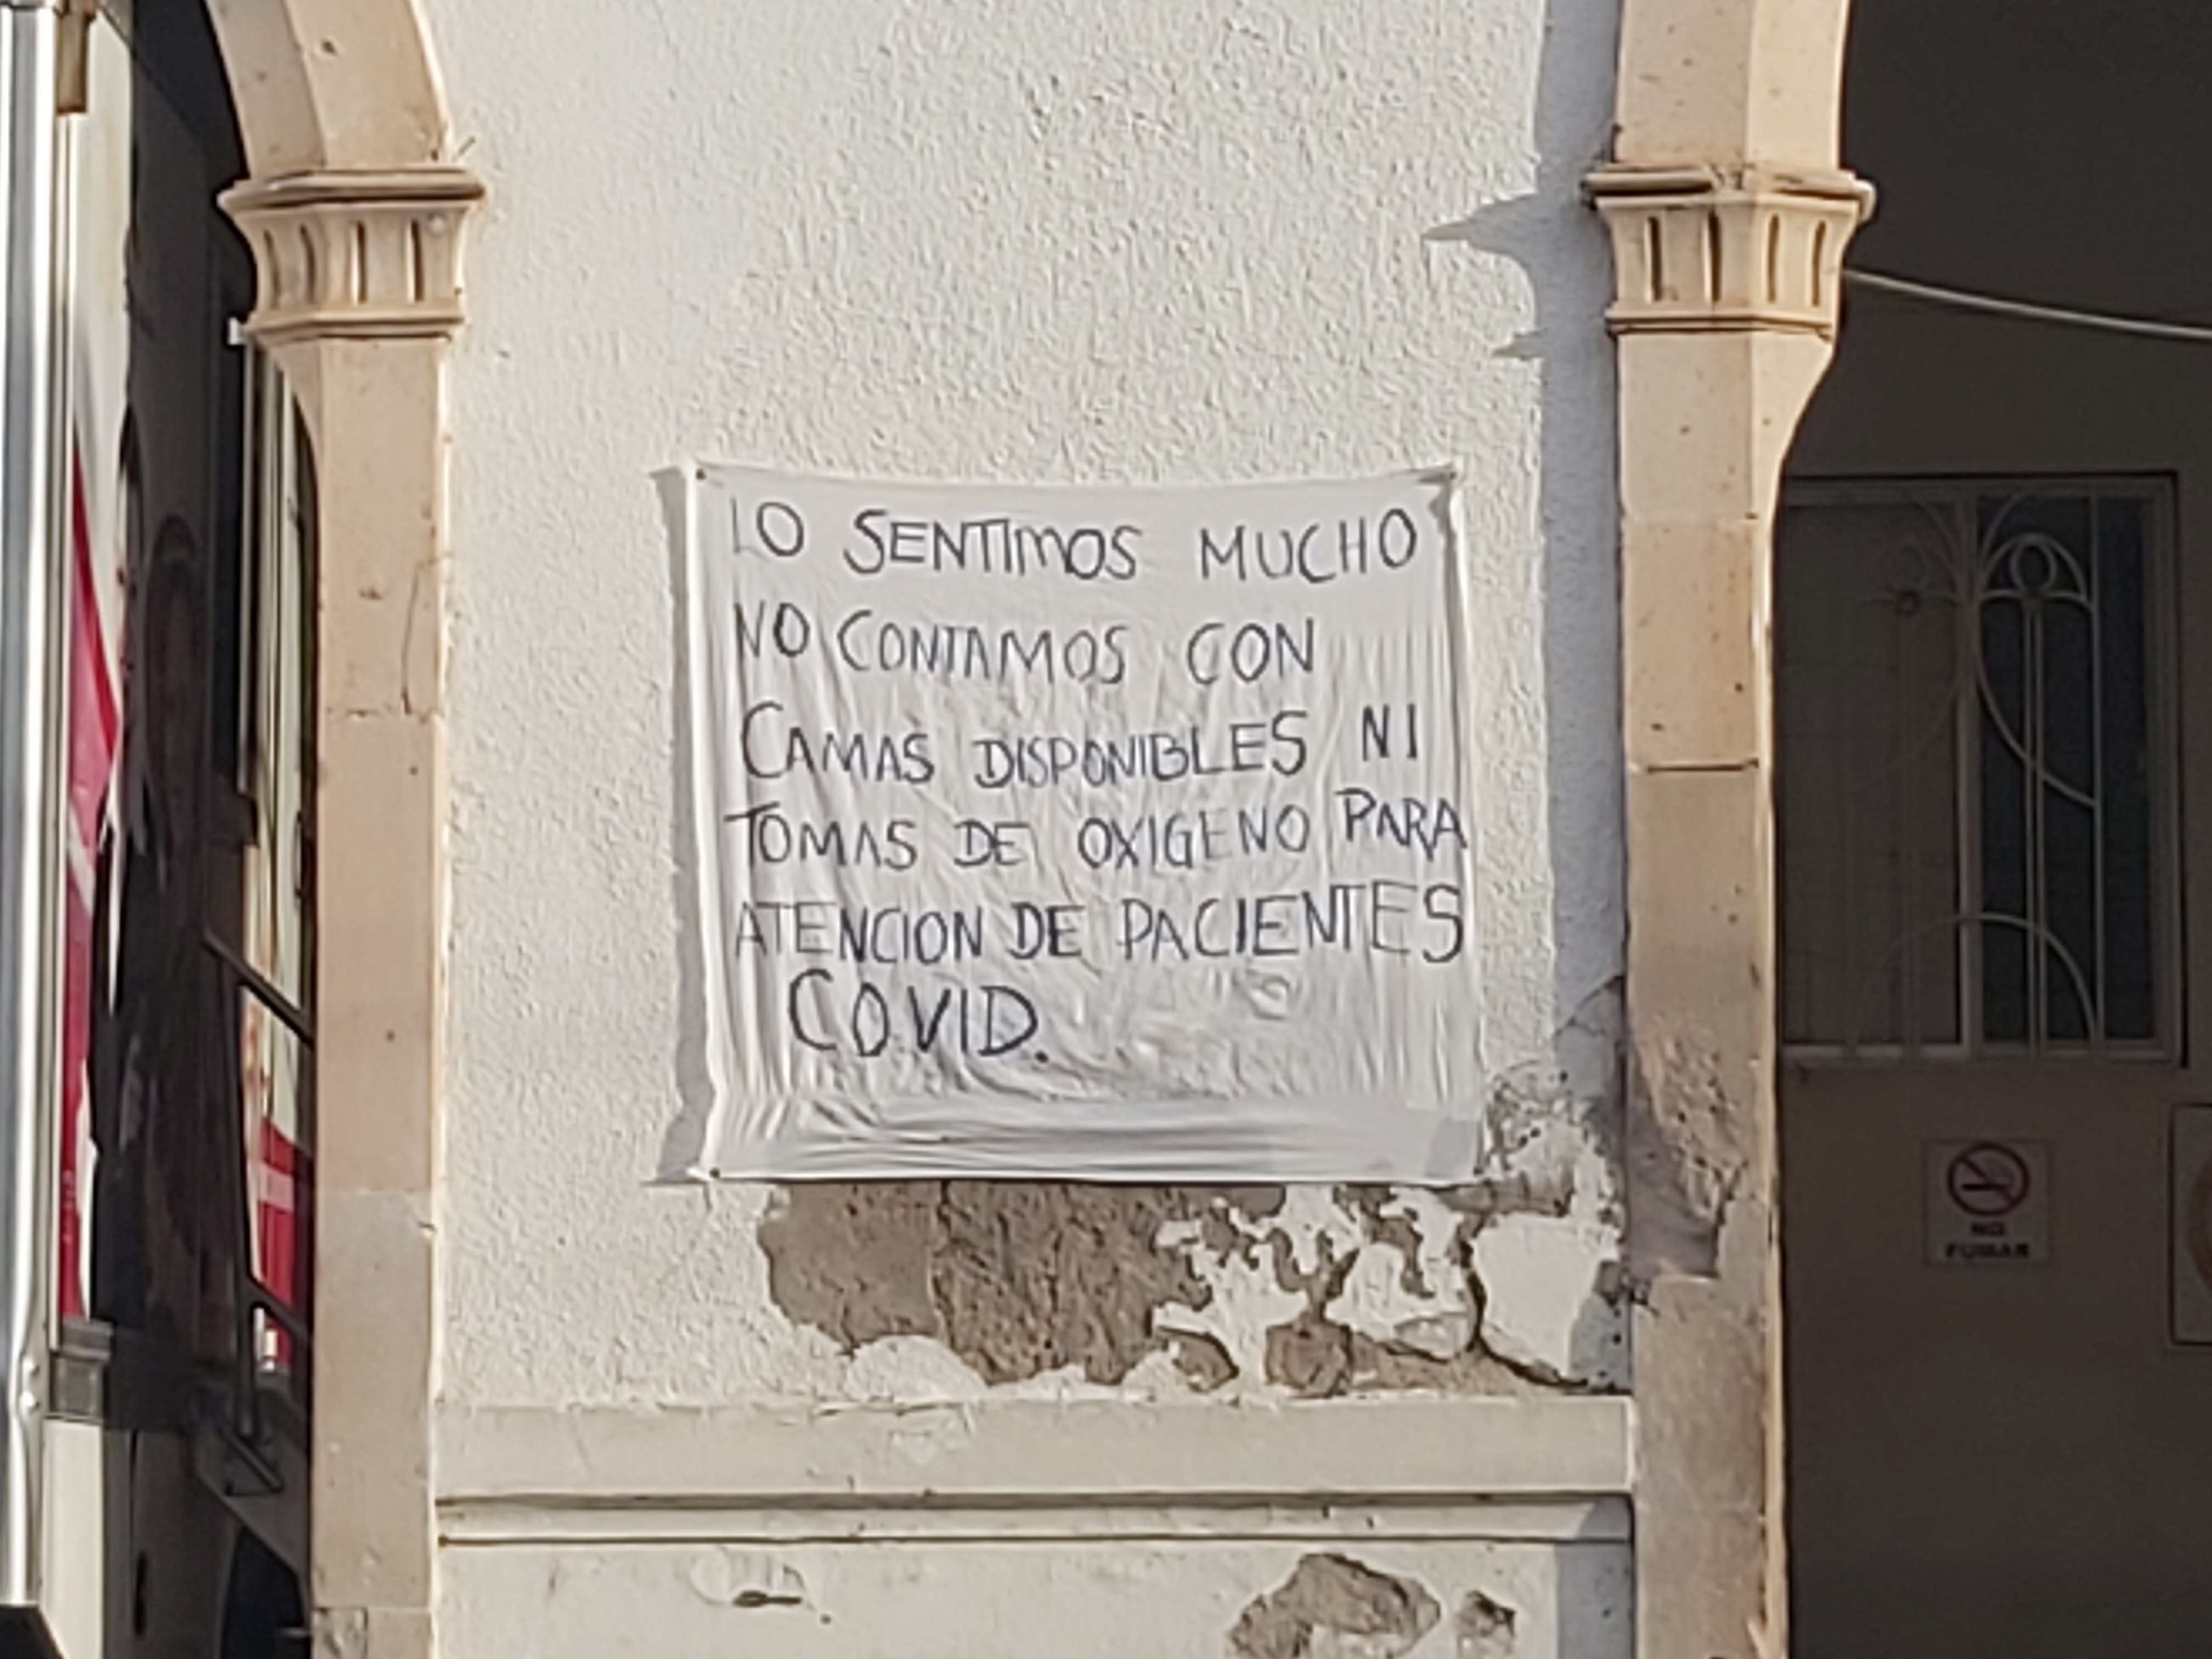 LO SENTIMOS MUCHO
NO CONTAMOS CON
CAMAS DISPONIBLES NI
TOMAS DE OXIGENO PARA
ATENCION DE PACIENTES
COVID.
NO
FUMAR